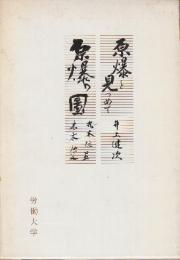 原爆を
見つめて
井上健次
原爆の図
丸木位里
赤松俊子
労働大学